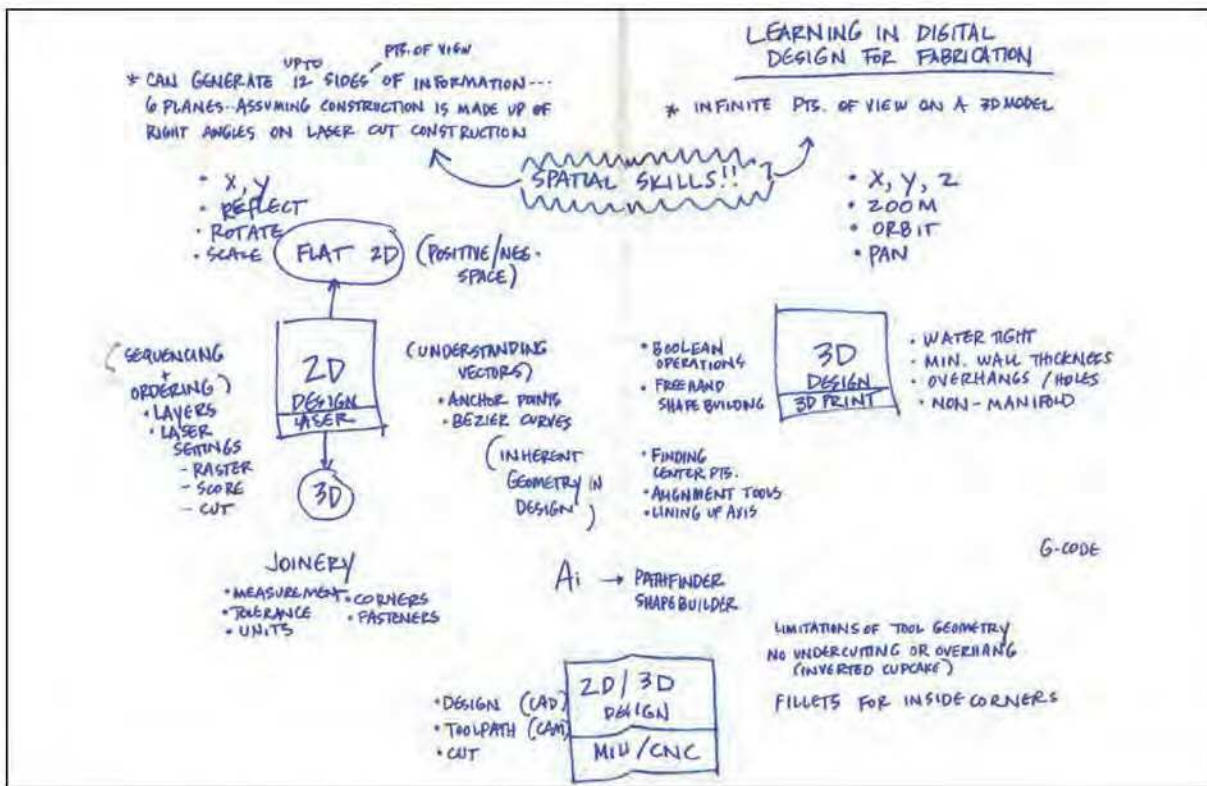 LEARNING IN DIGITAL
DESIGN FOR FABRICATION
PTS. OF VIEW
UP TO
* CAN GENERATE 12 SIDES OF INFORMATION...
6 PLANES.. ASSUMING CONSTRUCTION IS MADE UP OF
RIGHT ANGLES ON LASER CUT CONSTRUCTION
* INFINITE PTS. OF VIEW ON A 3D MODEL
SPATIAL SKILLS!!
• X, Y
• REFLECT
• ROTATE
• SCALE
FLAT 2D
(POSITIVE/NEG.
SPACE)
• X, Y, Z
• ZOOM
• ORBIT
• PAN
(SEQUENCING
+
ORDERING)
• LAYERS
• LASER
SETTINGS
- RASTER
- SCORE
- CUT
2D
DESIGN
LASER
3D
(UNDERSTANDING
VECTORS)
• ANCHOR POINTS
• BEZIER CURVES
(INHERENT
GEOMETRY IN
DESIGN)
• BOOLEAN
OPERATIONS
• FREEHAND
SHAPE BUILDING
• FINDING
CENTER PTS.
• ALIGNMENT TOOLS
• LINING UP AXIS
3D
DESIGN
3D PRINT
• WATER TIGHT
• MIN. WALL THICKNESS
• OVERHANGS / HOLES
• NON-MANIFOLD
JOINERY
• MEASUREMENT • CORNERS
• TOLERANCE • FASTENERS
• UNITS
Ai → PATHFINDER
SHAPEBUILDER
G-CODE
LIMITATIONS OF TOOL GEOMETRY
NO UNDERCUTTING OR OVERHANG
(INVERTED CUPCAKE)
FILLETS FOR INSIDE CORNERS
• DESIGN (CAD)
• TOOLPATH (CAM)
• CUT
2D/3D
DESIGN
MILL/CNC